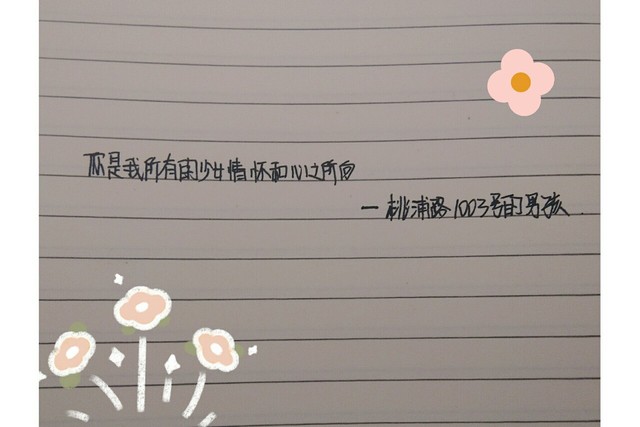 你是我所有的少女情怀和心之所向
一桃浦路1003号的男孩.